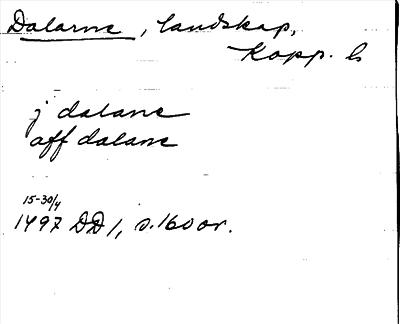 Dalarne, landskap,
Kopp. l.
j dalane
aff dalane
15-30/4
1497 DD 1, s. 160 or.